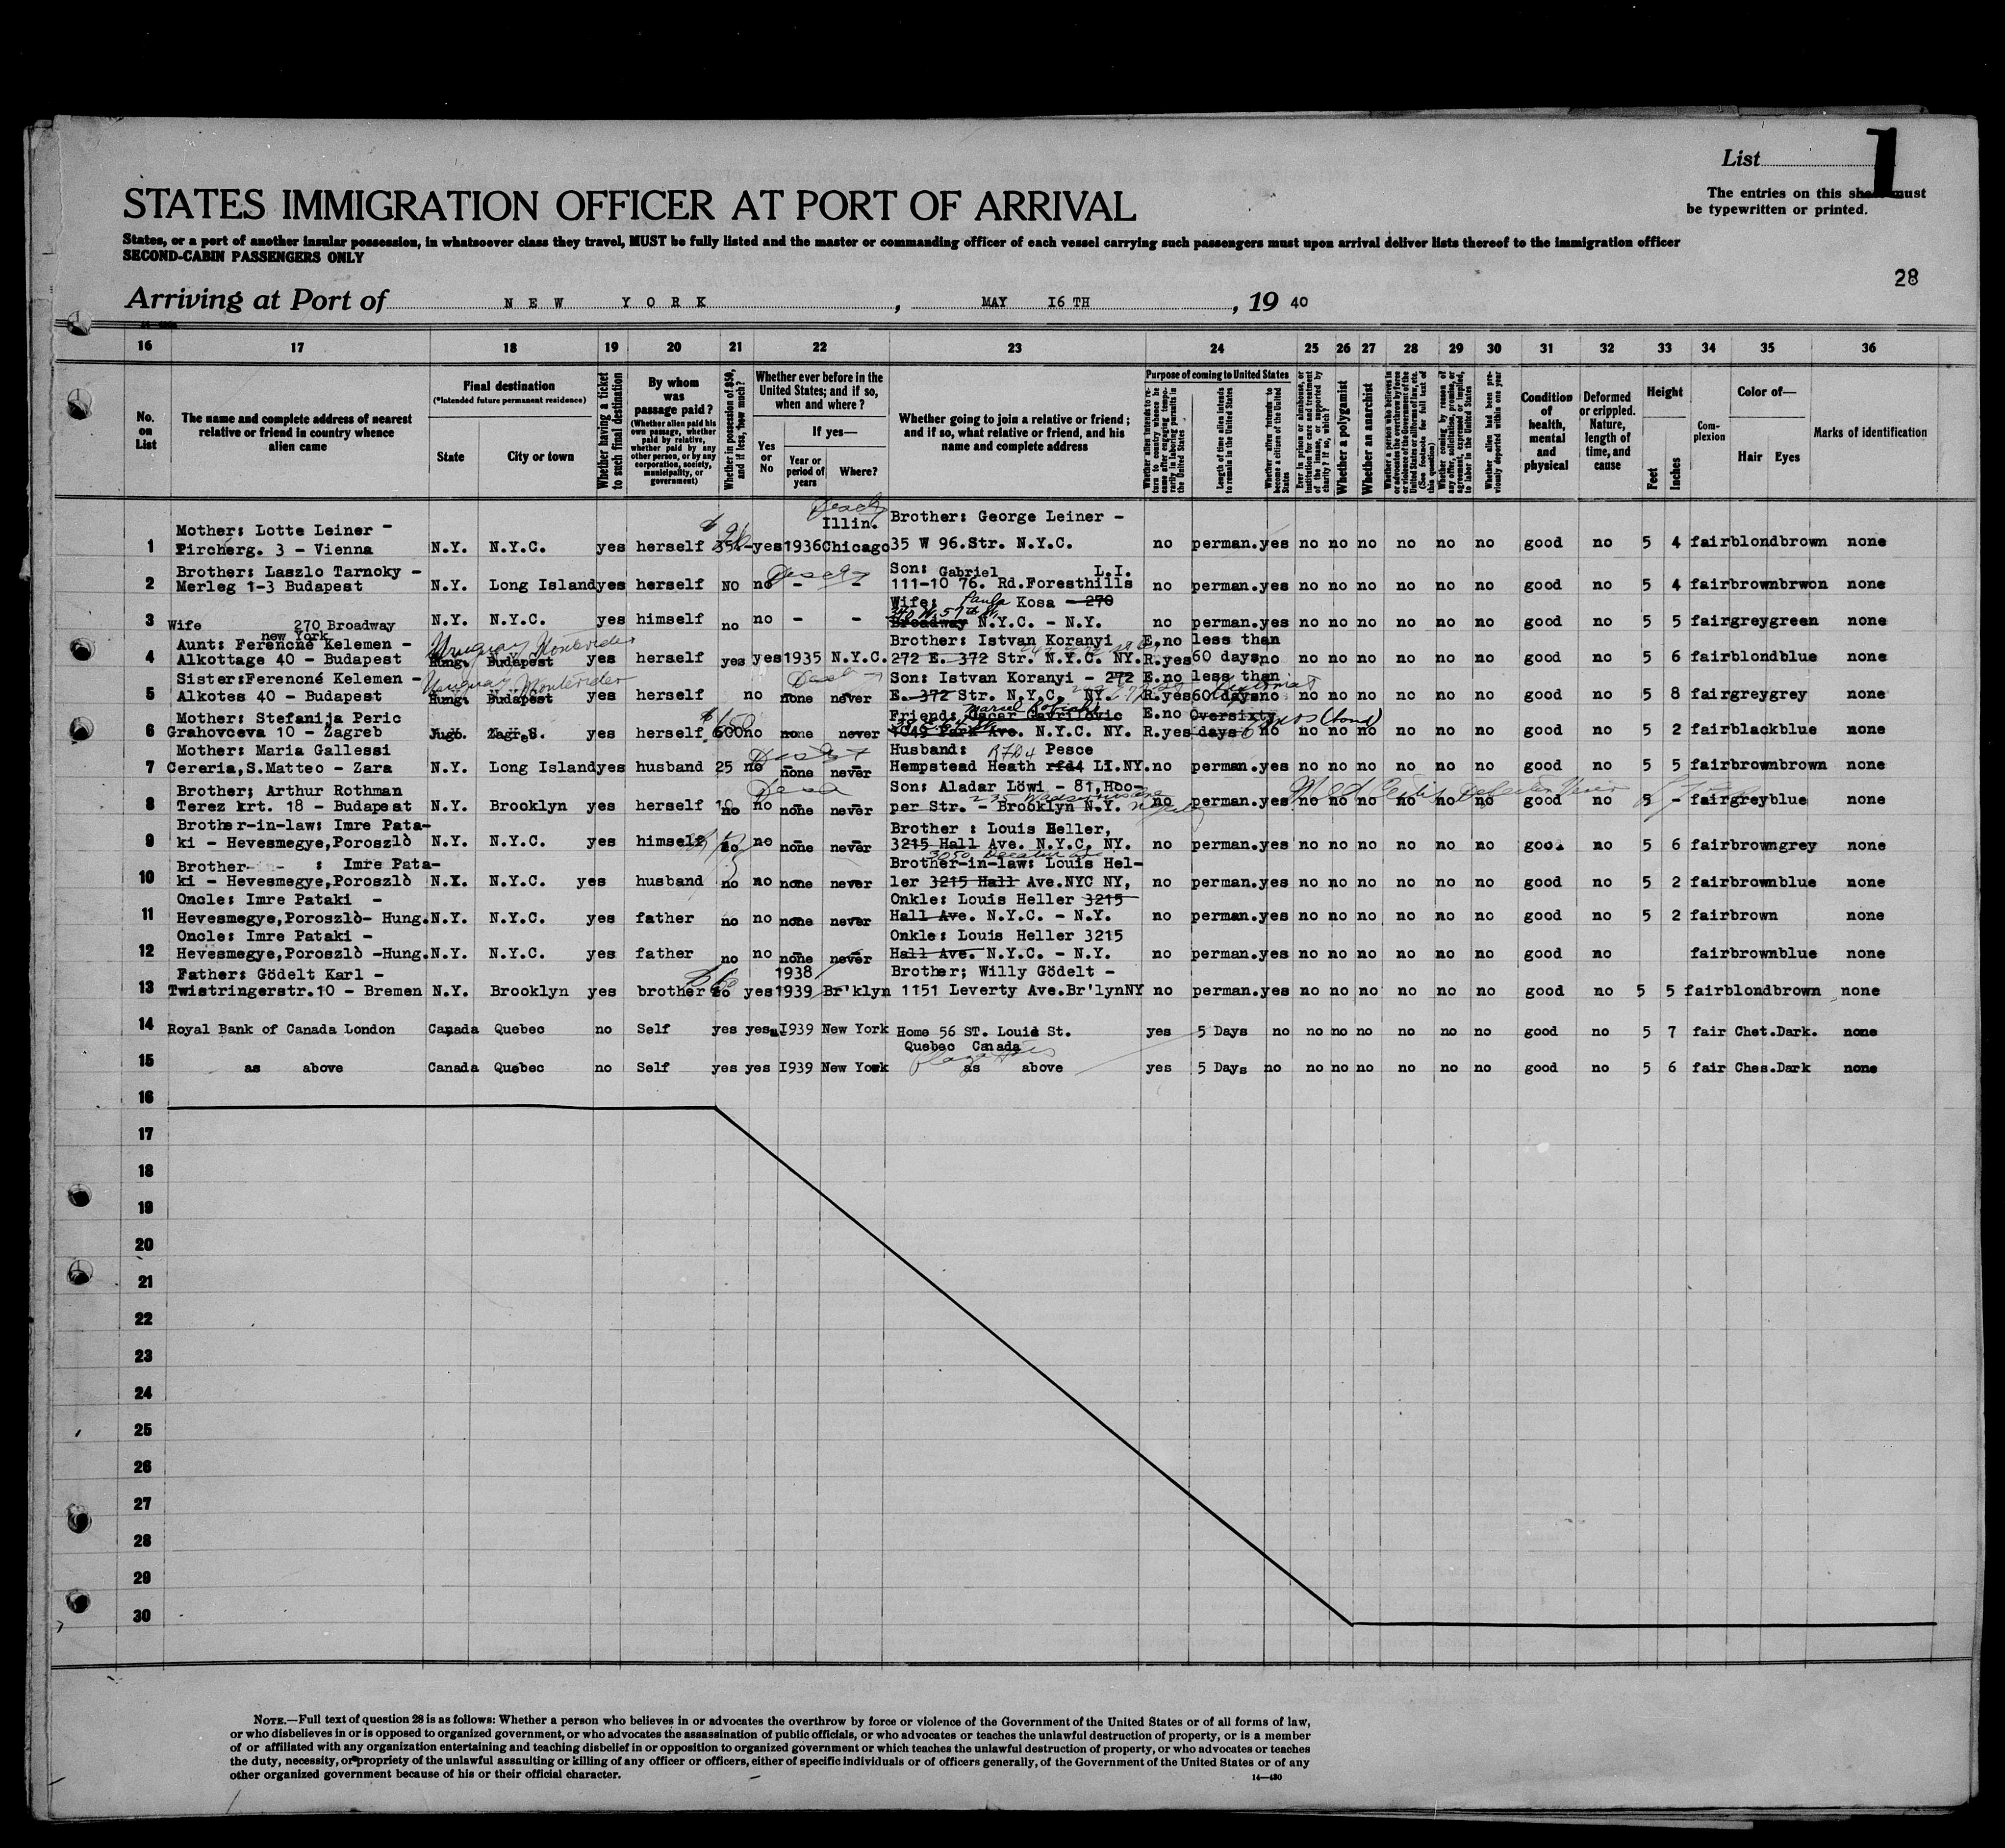 List 1
The entries on this sheet must
be typewritten or printed.
STATES IMMIGRATION OFFICER AT PORT OF ARRIVAL
States, or a port of another insular possession, in whatsoever class they travel, MUST be fully listed and the master or commanding officer of each vessel carrying such passengers must upon arrival deliver lists thereof to the immigration officer
SECOND-CABIN PASSENGERS ONLY
28
Arriving at Port of NEW YORK, MAY I6 TH, 19 40
16 17 18 19 20 21 22 23 24 25 26 27 28 29 30 31 32 33 34 35 36
No. on List
The name and complete address of nearest relative or friend in country whence alien came
Final destination
(*Intended future permanent residence)
State
City or town
Whether having a ticket to such final destination
By whom was passage paid?
(Whether alien paid his own passage, whether paid by relative, whether paid by any other person, or by any corporation, society, municipality, or government)
Whether in possession of $50, and if less, how much?
Whether ever before in the United States; and if so, when and where?
Yes or No
If yes—
Year or period of years
Where?
Whether going to join a relative or friend; and if so, what relative or friend, and his name and complete address
Purpose of coming to United States
Whether alien intends to return to country whence he came after engaging temporarily in laboring pursuits in the United States
Length of time alien intends to remain in the United States
Whether alien intends to become a citizen of the United States
Ever in prison or almshouse, or institution for care and treatment of the insane, or supported by charity? If so, which?
Whether a polygamist
Whether an anarchist
Whether a person who believes in or advocates the overthrow by force or violence of the Government of the United States or all forms of law, etc. (See footnote for full text of this question)
Whether coming by reason of any offer, solicitation, promise, or agreement, expressed or implied, to labor in the United States
Whether alien had been previously deported within one year
Condition of health, mental and physical
Deformed or crippled. Nature, length of time, and cause
Height
Feet
Inches
Complexion
Color of—
Hair Eyes
Marks of identification
Mother: Lotte Leiner - Illin. Brother: George Leiner -
1 Pircherg. 3 - Vienna N.Y. N.Y.C. yes herself yes 1936 Chicago 35 W 96.Str. N.Y.C. no perman. yes no no no no no no good no 5 4 fair blond brown none
Brother: Laszlo Tarnoky - Son: Gabriel L.I.
2 Merleg 1-3 Budapest N.Y. Long Island yes herself NO no - - 111-10 76. Rd.Foresthills no perman. yes no no no no no no good no 5 4 fair brown brwon none
Wife: Paula Kosa - 270
3 Wife 270 Broadway N.Y. N.Y.C. yes himself no no - - Broadway N.Y.C. - N.Y. no perman. yes no no no no no no good no 5 5 fair grey green none
new York
Aunt: Ferencné Kelemen - Uruguay Montevideo Brother: Istvan Koranyi E.no less than
4 Alkottage 40 - Budapest Hung. Budapest yes herself yes yes 1935 N.Y.C. 272 E. 372 Str. N.Y.C. NY. R.yes 60 days no no no no no no no good no 5 6 fair blond blue none
Sister:Ferencné Kelemen - Uruguay Montevideo Son: Istvan Koranyi - 272 E.no less than
5 Alkotes 40 - Budapest Hung. Budapest yes herself no none never E. 372 Str. N.Y.C. NY. R.yes 60 days no no no no no no no good no 5 8 fair grey grey none
Mother: Stefanija Peric Friend: Oscar Gavrilovic E.no Oversixty
6 Grahovceva 10 - Zagreb Jugo. Zagreb. yes herself 600 no none never 1049 Park Ave. N.Y.C. NY. R.yes days no no no no no no no good no 5 2 fair black blue none
Mother: Maria Gallessi Husband: RFD4 Pesce
7 Cereria,S.Matteo - Zara N.Y. Long Island yes husband 25 no none never Hempstead Heath rfd4 LI.NY. no perman. yes no no no no no no good no 5 5 fair brown brown none
Brother; Arthur Rothman Son: Aladar Löwi - 81,Hoo-
8 Terez krt. 18 - Budapest N.Y. Brooklyn yes herself 10 no no none never per Str. - Brooklyn N.Y. no perman. yes no no no no no no good no 5 - fair grey blue none
Brother-in-law: Imre Pata- Brother : Louis Heller,
9 ki - Hevesmegye,Poroszlò N.Y. N.Y.C. yes himself no no none never 3215 Hall Ave. N.Y.C. NY. no perman. yes no no no no no no good no 5 6 fair brown grey none
Brother- : Imre Pata- Brother-in-law: Louis Hel-
10 ki - Hevesmegye,Poroszlò N.Y. N.Y.C. yes husband no no none never ler 3215 Hall Ave.NYC NY, no perman. yes no no no no no no good no 5 2 fair brown blue none
Oncle: Imre Pataki - Onkle: Louis Heller 3215
11 Hevesmegye,Poroszlò- Hung. N.Y. N.Y.C. yes father no no none never Hall Ave. N.Y.C. - N.Y. no perman. yes no no no no no no good no 5 2 fair brown none
Oncle: Imre Pataki - Onkle: Louis Heller 3215
12 Hevesmegye,Poroszlò -Hung. N.Y. N.Y.C. yes father no no none never Hall Ave. N.Y.C. - N.Y. no perman. yes no no no no no no good no fair brown blue none
Father: Gödelt Karl - 1938 Brother; Willy Gödelt -
13 Twistringerstr.10 - Bremen N.Y. Brooklyn yes brother yes 1939 Br'klyn 1151 Leverty Ave.Br'lynNY no perman. yes no no no no no no good no 5 5 fair blond brown none
14 Royal Bank of Canada London Canada Quebec no Self yes yes I939 New York Home 56 ST. Louis St. yes 5 Days no no no no no no no good no 5 7 fair Chet.Dark. none
Quebec Canada
15 as above Canada Quebec no Self yes yes I939 New York as above yes 5 Days no no no no no no no good no 5 6 fair Ches.Dark none
16
17
18
19
20
21
22
23
24
25
26
27
28
29
30
NOTE.—Full text of question 28 is as follows: Whether a person who believes in or advocates the overthrow by force or violence of the Government of the United States or of all forms of law,
or who disbelieves in or is opposed to organized government, or who advocates the assassination of public officials, or who advocates or teaches the unlawful destruction of property, or is a member
of or affiliated with any organization entertaining and teaching disbelief in or opposition to organized government or which teaches the unlawful destruction of property, or who advocates or teaches
the duty, necessity, or propriety of the unlawful assaulting or killing of any officer or officers, either of specific individuals or of officers generally, of the Government of the United States or of any
other organized government because of his or their official character.
14—430